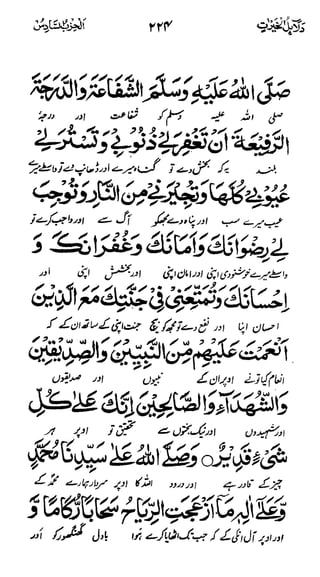 دلائل الخيرات ۲۲۴ الحزب السادس
صَلَّى اللهُ عَلَيْهِ وَسَلَّمَ الشَّفَاعَةَ وَالدَّرَجَةَ
صلی اللہ علیہ وسلم کو شفاعت اور درجۂ
الرَّفِيْعَةَ اَنْ تَغْفِرَ لِيْ ذُنُوْبِيْ وَتَسْتُرَ لِيْ
بلند یہ کہ بخش دے تو گناہ میرے اور ڈھانپ دے تو واسطے میرے
عُيُوْبِيْ كُلَّهَا وَتُجِيْرَنِيْ مِنَ النَّارِ وَتُوْجِبَ
عیب میرے سب اور پناہ دے مجھکو آگ سے اور واجب کرے تو
لِيْ رِضْوَانَكَ وَاَمَانَكَ وَغُفْرَانَكَ وَ
واسطے میرے خوشنودی اپنی اور امان اپنی اور بخشش اپنی اور
اِحْسَانَكَ وَتُمَتِّعَنِيْ فِيْ جَنَّتِكَ مَعَ الَّذِيْنَ
احسان اپنا اور نفع دے تو مجھ کو بیچ جنت اپنی کے ساتھ ان کے کہ
اَنْعَمْتَ عَلَيْهِمْ مِّنَ النَّبِيِّيْنَ وَالصِّدِّيْقِيْنَ
انعام کیا تونے اوپر ان کے نبیوں اور صدیقوں
وَالشُّهَدَآءِ وَالصَّالِحِيْنَ اِنَّكَ عَلٰى كُلِّ
اور شہیدوں اور نیک بختوں سے تحقیق تو اوپر ہر
شَيْءٍ قَدِيْرٌ ○ وَصَلَّى اللهُ عَلٰى سَيِّدِنَا مُحَمَّدٍ
چیز کے قادر ہے اور درود اللہ کا اوپر سردار ہمارے محمد کے
وَّعَلٰى اٰلِهٖ مَا اَزْعَجَتِ الرِّيَاحُ سَحَابًا رُّكَامًا وَّ
اور اوپر آل انکی کے کہ جب تک اٹھایا کرے ہوا بادل گھنگھور کو اور